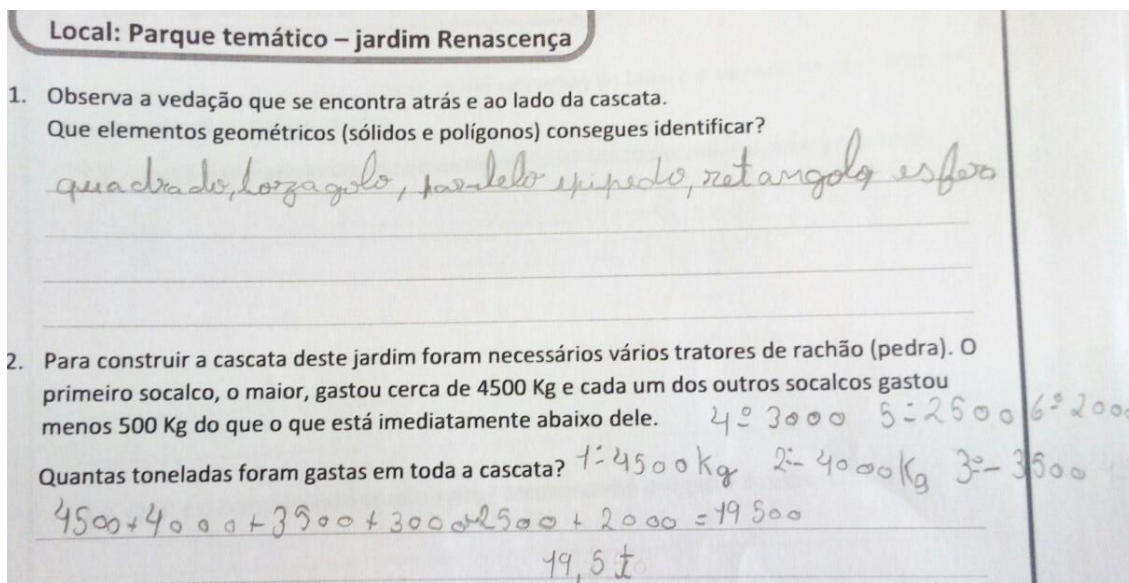 Local: Parque temático – jardim Renascença
1. Observa a vedação que se encontra atrás e ao lado da cascata.
Que elementos geométricos (sólidos e polígonos) consegues identificar?
quadrado, lozagolo, parlelo epipedo, retangolo, esfera
2. Para construir a cascata deste jardim foram necessários vários tratores de rachão (pedra). O
primeiro socalco, o maior, gastou cerca de 4500 Kg e cada um dos outros socalcos gastou
menos 500 Kg do que o que está imediatamente abaixo dele. 4º 3000 5º 2500 6º 2000
Quantas toneladas foram gastas em toda a cascata? 1º 4500Kg 2º 4000Kg 3º 3500
4500+4000+3500+3000+2500+2000=19500
19,5 t